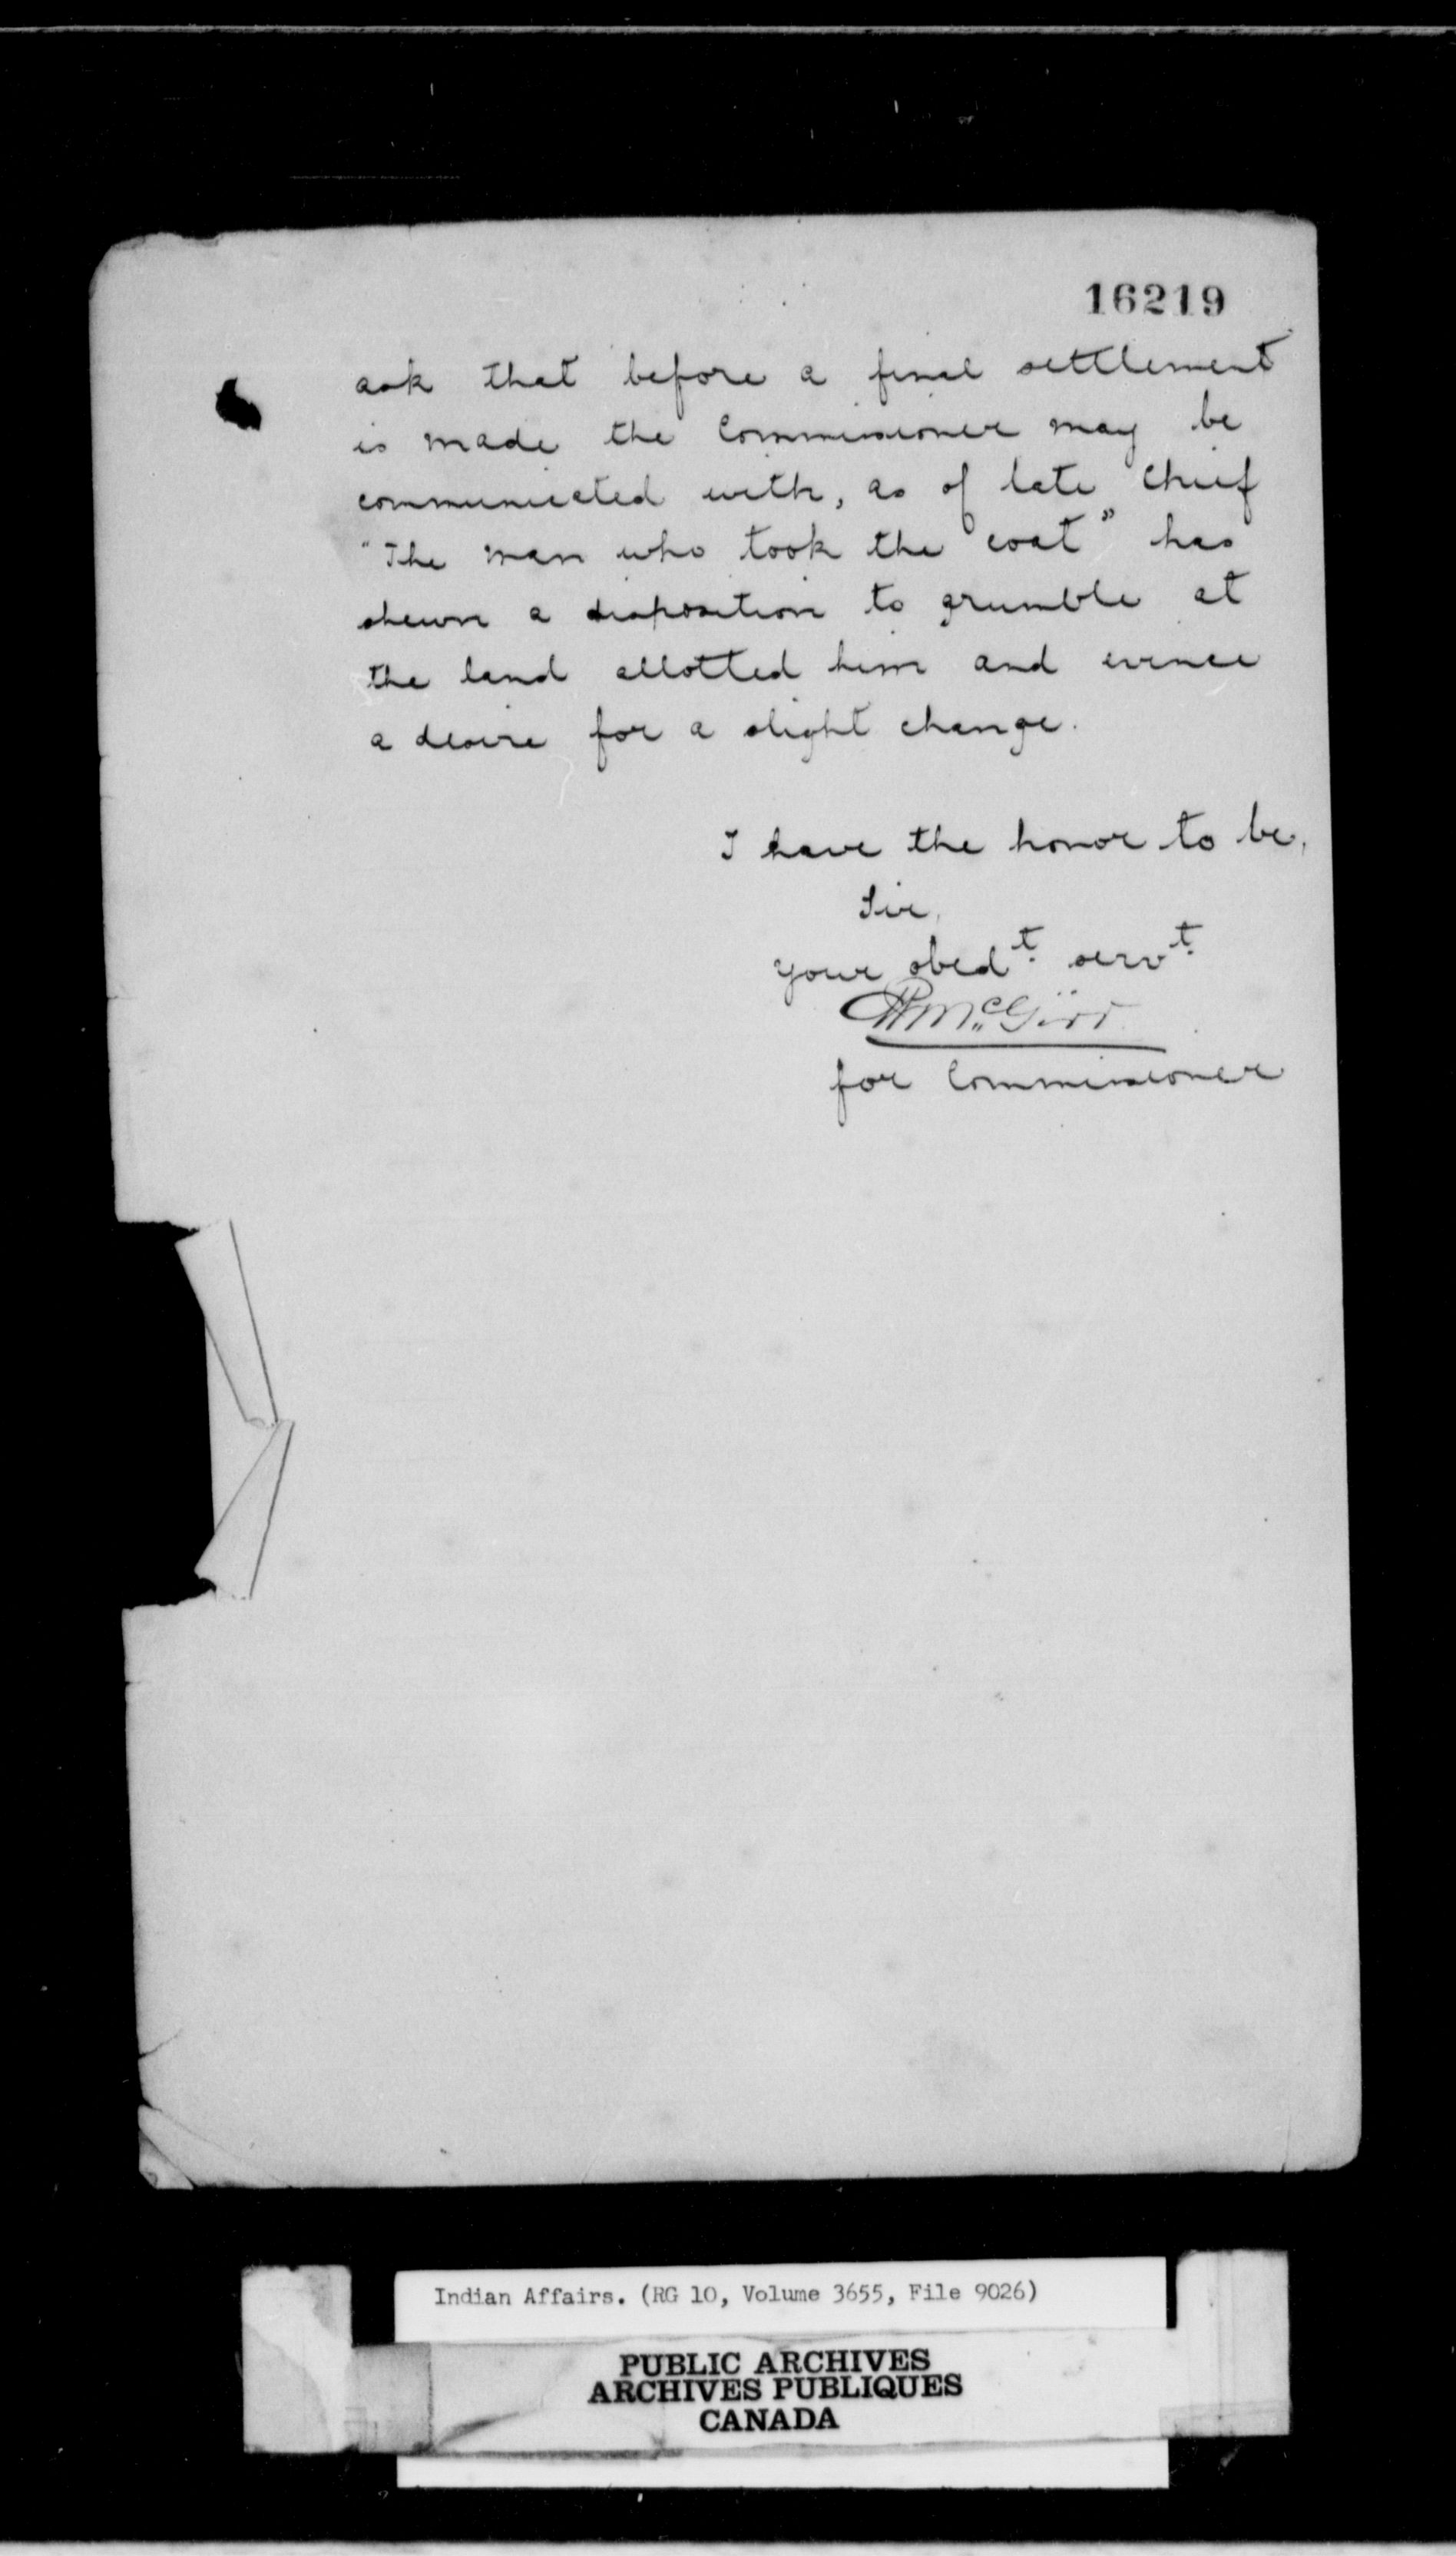 16219
ask that before a final settlement
is made the Commissioner may be
communicated with, as of late Chief
"The man who took the coat" has
shewn a disposition to grumble at
the land allotted him and evince
a desire for a slight change.
I have the honor to be,
Sir,
your obedt. servt.
McGirr
for Commissioner
Indian Affairs. (RG 10, Volume 3655, File 9026)
PUBLIC ARCHIVES
ARCHIVES PUBLIQUES
CANADA